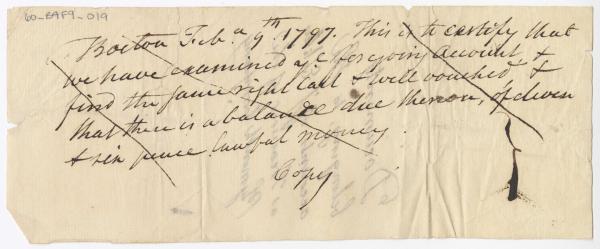 60-E9F9-019
Boston Feb.a 9th. 1797. This is to certify that
we have examined ye foregoing Account &
find the same right Cast & well vouched &
that there is a balance due thereon, of
& six pence lawful money.
Copy